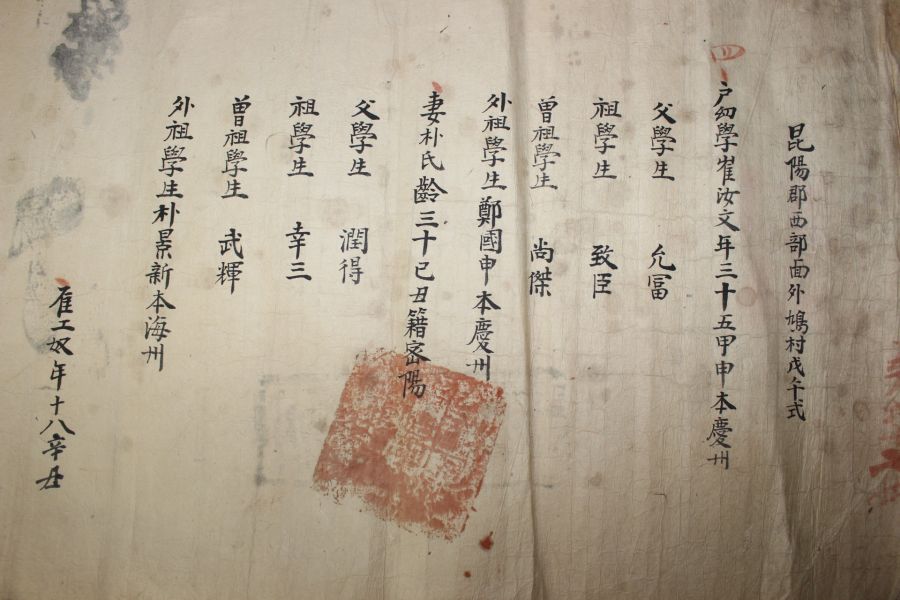 昆陽郡西部面外鳩村戊午式
四
户幼學崔汝文年三十五甲申本慶州
父學生 允冨
祖學生 致臣
曽祖學生 尚傑
外祖學生鄭國申本慶州
妻朴氏齡三十己丑籍宻陽
父學生 潤得
祖學生 幸三
曽祖學生 武輝
外祖學生朴景新本海州
雇工奴年十八辛丑